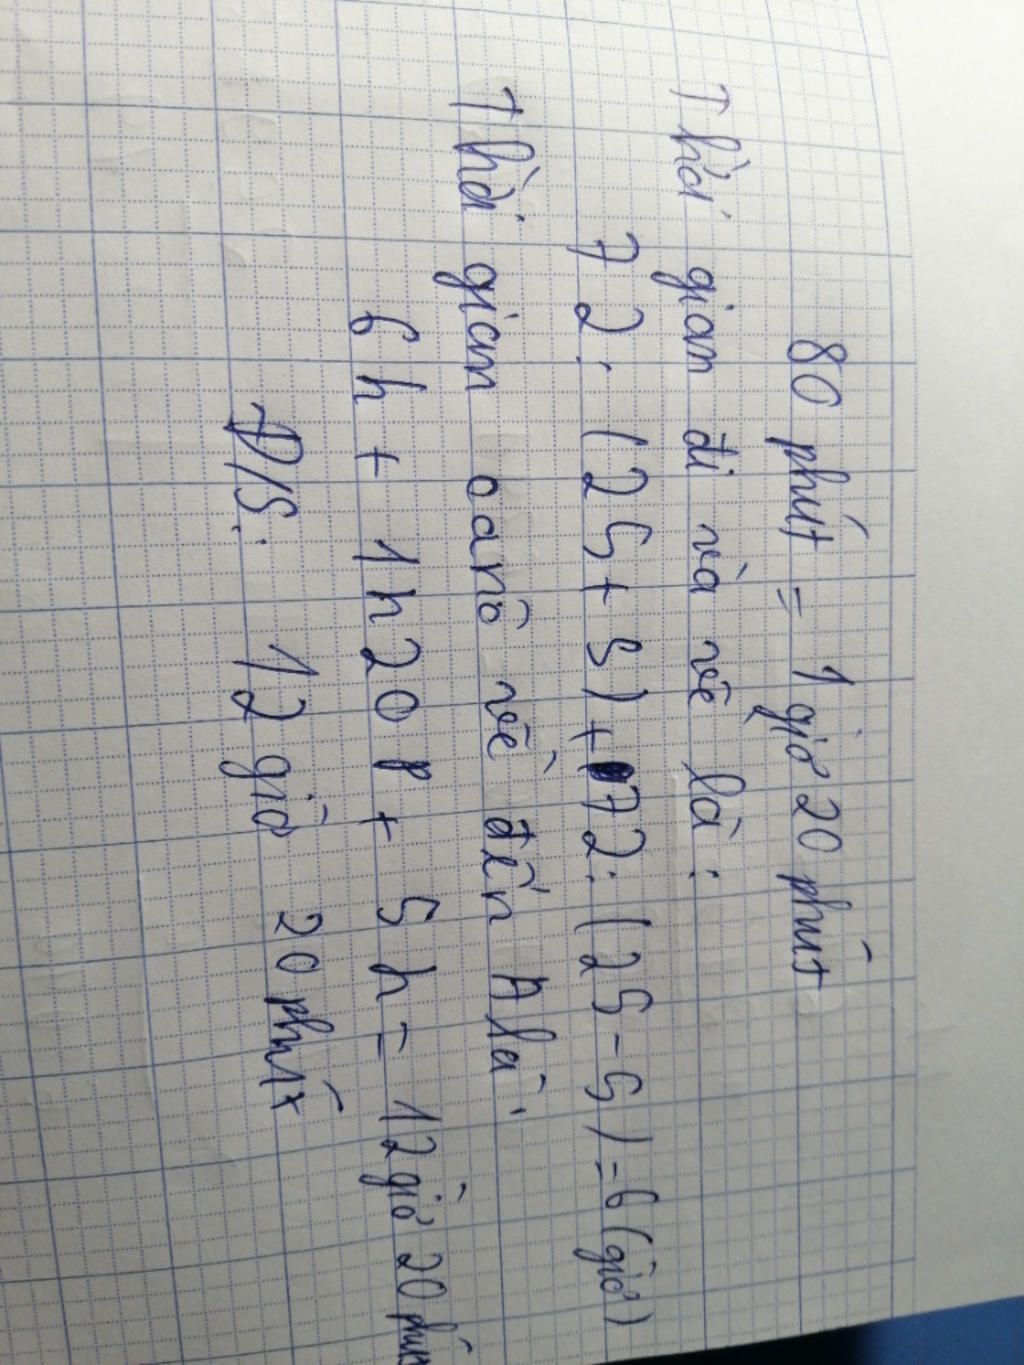 80 phút = 1 giờ 20 phút
Thời gian đi và về là:
72 : (25 + 5) + 72 : (25 - 5) = 6 (giờ)
Thời gian canô về đến A là:
6h + 1h20p + 5h = 12 giờ 20 phút
Đ/S: 12 giờ 20 phút